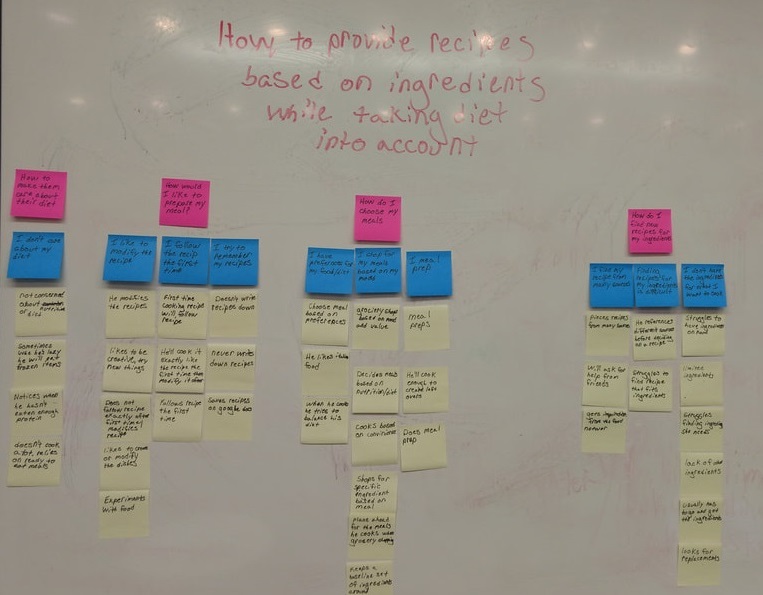 How to provide recipes
based on ingredients
while taking diet
into account
How to
make them
care about
their diet
I don't care
about my
diet
Not concerned
about
or diet
Sometimes
when he's lazy
he will get
frozen items
Notices when
he hasn't
eaten enough
protein
doesn't cook
a lot, relies
on ready to
eat meals
How would
I like to
prepare my
meal?
I like to modify
the recipe
He modifies
the recipes
likes to be
creative, try
new things
Does not
follow recipe
exactly after
first time/
modifies
recipe
likes to
or modify
the dishes
Experiments
with food
I follow
the recipe
the first
time
First time
cooking recipe
will follow
recipe
He'll cook it
exactly like
the recipe the
first time then
modify it after
Follows recipe
the first time
I try to
remember my
recipes
Doesn't write
recipes down
never writes
down recipes
Saves recipes
on google doc
How do I
choose my
meals
I have
preferences for
my food/diet
Choose meal
based on
preferences
He likes
food
when he cooks
he tries to
balance his
diet
I shop for
my meals
based on my needs
grocery shops
based on need
and value
Decides meal
based on
nutrition/diet
Cooks based
on convenience
Shops for
specific
ingredient
based on
meal
plans ahead
for the meals
he cooks when
grocery shopping
Keeps a
baseline set
of ingredients
around
I meal
prep
meal
preps
He'll cook
enough to
create left
overs
Does meal
prep
How do I
find new
recipes for
my ingredients
I find my
recipe from
many sources
recipes
from many sources
Will ask for
help from
friends
gets
from the food
network
Finding
recipes for
my ingredients
is difficult
He references
different sources
before deciding
on a recipe
Struggles to
find recipe
that fits
ingredients
I don't have
the ingredients
for what I
want to cook
Struggles to
have ingredients
on hand
limited
ingredients
Struggles
finding ingredients
she needs
lack of
ingredients
Usually has
to go and get
the ingredients
looks for
replacements